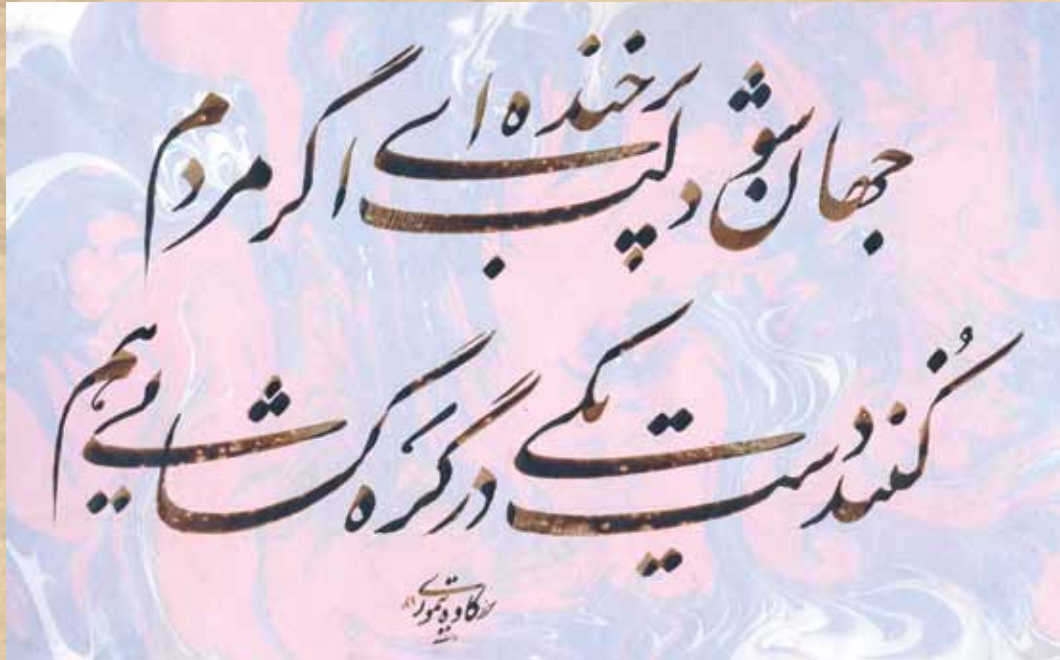 جهان شود لب پرخنده ای اگر مردم
کنند دست یکی در گره گشایی هم
کاوه تیموری